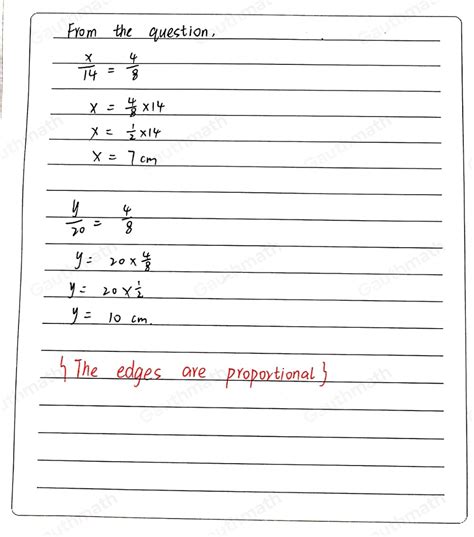 From the question,
x/14 = 4/8
x = 4/8 × 14
x = 1/2 × 14
x = 7 cm
y/20 = 4/8
y = 20 × 4/8
y = 20 × 1/2
y = 10 cm.
{The edges are proportional}
Gauthmath